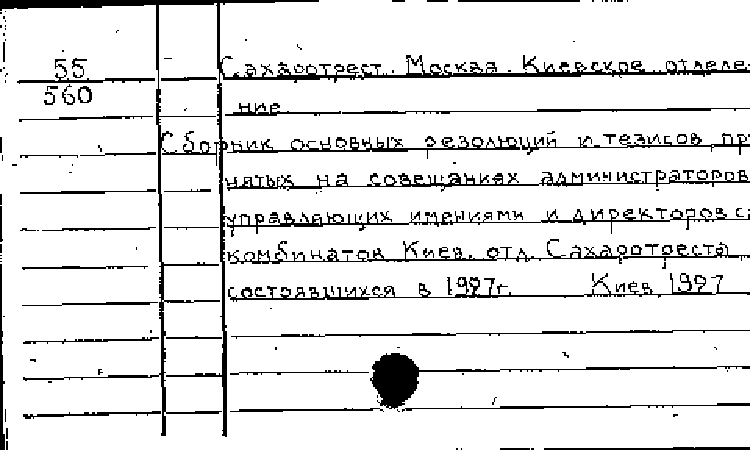 55
560
Сахаротрест. Москва. Киевское отделе-
ние
Сборник основных резолюций и тезисов, при
нятых на совещаниях администраторов
управляющих имениями и директоров с
комбинатов Киев. отд. Сахаротреста
состоявшихся в 1927г. Киев 1927